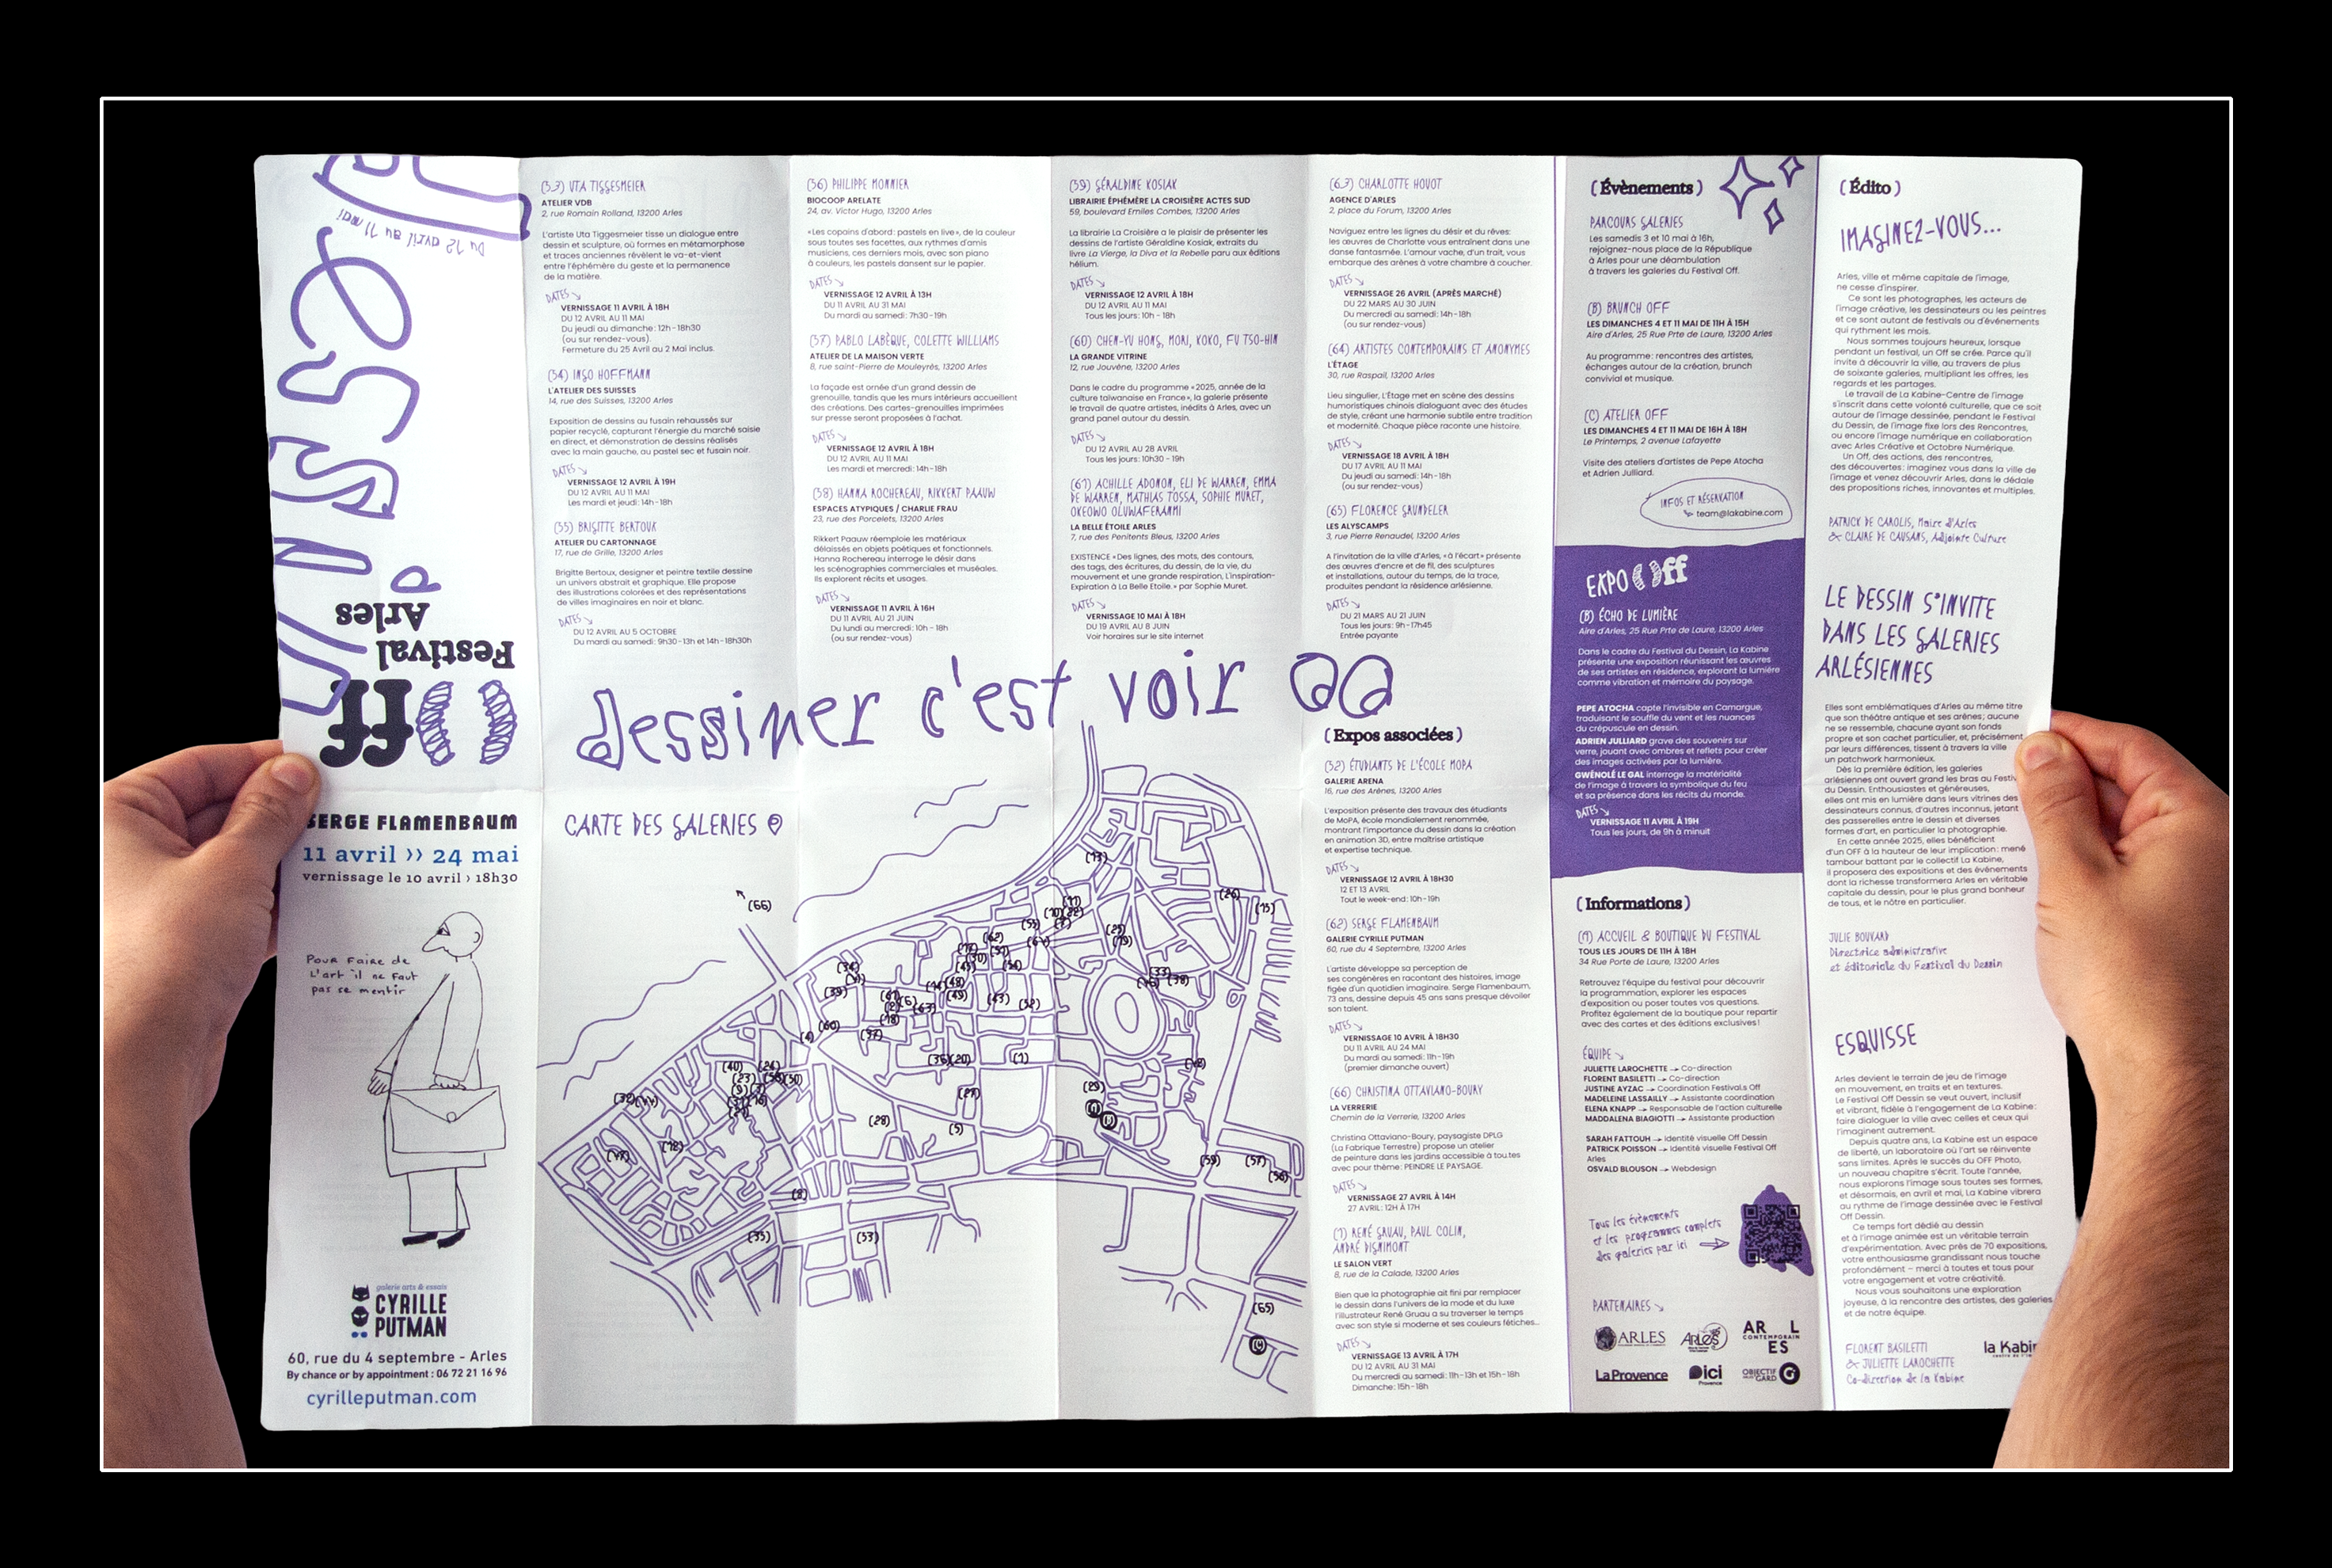 Du 12 avril au 11 mai
DESSIN
Off
Festival
Arles
SERGE FLAMENBAUM
11 avril >> 24 mai
vernissage le 10 avril > 18h30
Pour faire de
l'art il ne faut
pas se mentir
galerie arts & essais
CYRILLE
PUTMAN
60, rue du 4 septembre - Arles
By chance or by appointment : 06 72 21 16 96
cyrilleputman.com
(53) UTA TIGGESMEIER
ATELIER VDB
2, rue Romain Rolland, 13200 Arles
L'artiste Uta Tiggesmeier tisse un dialogue entre
dessin et sculpture, où formes en métamorphose
et traces anciennes révèlent le va-et-vient
entre l'éphémère du geste et la permanence
de la matière.
DATES
VERNISSAGE 11 AVRIL À 18H
DU 12 AVRIL AU 11 MAI
Du jeudi au dimanche: 12h-18h30
(ou sur rendez-vous).
Fermeture du 25 Avril au 2 Mai inclus.
(54) INGO HOFFMANN
L'ATELIER DES SUISSES
14, rue des Suisses, 13200 Arles
Exposition de dessins au fusain rehaussés sur
papier recyclé, capturant l'énergie du marché saisie
en direct, et démonstration de dessins réalisés
avec la main gauche, au pastel sec et fusain noir.
DATES
VERNISSAGE 12 AVRIL À 19H
DU 12 AVRIL AU 11 MAI
Les mardi et jeudi: 14h-18h
(55) BRIGITTE BERTOUX
ATELIER DU CARTONNAGE
17, rue de Grille, 13200 Arles
Brigitte Bertoux, designer et peintre textile dessine
un univers abstrait et graphique. Elle propose
des illustrations colorées et des représentations
de villes imaginaires en noir et blanc.
DATES
DU 12 AVRIL AU 5 OCTOBRE
Du mardi au samedi: 9h30-13h et 14h-18h30h
(56) PHILIPPE MONNIER
BIOCOOP ARELATE
24, av. Victor Hugo, 13200 Arles
«Les copains d'abord: pastels en live», de la couleur
sous toutes ses facettes, aux rythmes d'amis
musiciens, ces derniers mois, avec son piano
à couleurs, les pastels dansent sur le papier.
DATES
VERNISSAGE 12 AVRIL À 13H
DU 11 AVRIL AU 31 MAI
Du mardi au samedi: 7h30-19h
(57) PABLO LABÈQUE, COLETTE WILLIAMS
ATELIER DE LA MAISON VERTE
8, rue saint-Pierre de Mouleyrès, 13200 Arles
La façade est ornée d'un grand dessin de
grenouille, tandis que les murs intérieurs accueillent
des créations. Des cartes-grenouilles imprimées
sur presse seront proposées à l'achat.
DATES
VERNISSAGE 12 AVRIL À 18H
DU 12 AVRIL AU 11 MAI
Les mardi et mercredi: 14h-18h
(58) HANNA ROCHEREAU, RIKKERT PAAUW
ESPACES ATYPIQUES / CHARLIE FRAU
23, rue des Porcelets, 13200 Arles
Rikkert Paauw réemploie les matériaux
délaissés en objets poétiques et fonctionnels.
Hanna Rochereau interroge le désir dans
les scénographies commerciales et muséales.
Ils explorent récits et usages.
DATES
VERNISSAGE 11 AVRIL À 16H
DU 11 AVRIL AU 21 JUIN
Du lundi au mercredi: 10h - 18h
(ou sur rendez-vous)
(59) GÉRALDINE KOSIAK
LIBRAIRIE ÉPHÉMÈRE LA CROISIÈRE ACTES SUD
59, boulevard Emiles Combes, 13200 Arles
La librairie La Croisière a le plaisir de présenter les
dessins de l'artiste Géraldine Kosiak, extraits du
livre La Vierge, la Diva et la Rebelle paru aux éditions
hélium.
DATES
VERNISSAGE 12 AVRIL À 18H
DU 12 AVRIL AU 11 MAI
Tous les jours: 10h - 18h
(60) CHEN-YU HONG, MORI, KOKO, FU TSO-HIN
LA GRANDE VITRINE
12, rue Jouvène, 13200 Arles
Dans le cadre du programme «2025, année de la
culture taïwanaise en France», la galerie présente
le travail de quatre artistes, inédits à Arles, avec un
grand panel autour du dessin.
DATES
DU 12 AVRIL AU 28 AVRIL
Tous les jours: 10h30 - 19h
(61) ACHILLE ADONON, ELI DE WARREN, EMMA
DE WARREN, MATHIAS TOSSA, SOPHIE MURET,
OKEOWO OLUWAFERANMI
LA BELLE ÉTOILE ARLES
7, rue des Penitents Bleus, 13200 Arles
EXISTENCE «Des lignes, des mots, des contours,
des tags, des écritures, du dessin, de la vie, du
mouvement et une grande respiration, L'inspiration-
Expiration à La Belle Etoile.» par Sophie Muret.
DATES
VERNISSAGE 10 MAI À 18H
DU 19 AVRIL AU 8 JUIN
Voir horaires sur le site internet
(63) CHARLOTTE HOUOT
AGENCE D'ARLES
2, place du Forum, 13200 Arles
Naviguez entre les lignes du désir et du rêves:
les œuvres de Charlotte vous entraînent dans une
danse fantasmée. L'amour vache, d'un trait, vous
embarque des arènes à votre chambre à coucher.
DATES
VERNISSAGE 26 AVRIL (APRÈS MARCHÉ)
DU 22 MARS AU 30 JUIN
Du mercredi au samedi: 14h-18h
(ou sur rendez-vous)
(64) ARTISTES CONTEMPORAINS ET ANONYMES
L'ÉTAGE
30, rue Raspail, 13200 Arles
Lieu singulier, L'Étage met en scène des dessins
humoristiques chinois dialoguant avec des études
de style, créant une harmonie subtile entre tradition
et modernité. Chaque pièce raconte une histoire.
DATES
VERNISSAGE 18 AVRIL À 18H
DU 17 AVRIL AU 11 MAI
Du jeudi au samedi: 14h-18h
(ou sur rendez-vous)
(65) FLORENCE GRUNDELER
LES ALYSCAMPS
3, rue Pierre Renaudel, 13200 Arles
A l'invitation de la ville d'Arles, «à l'écart» présente
des œuvres d'encre et de fil, des sculptures
et installations, autour du temps, de la trace,
produites pendant la résidence arlésienne.
DATES
DU 21 MARS AU 21 JUIN
Tous les jours: 9h-17h45
Entrée payante
dessiner c'est voir
CARTE DES GALERIES
(66)
(13)
(26)
(15)
(62)
(34)
(39)
(60)
(4)
(6)
(63)
(49)
(43)
(52)
(37)
(36)
(20)
(1)
(40)
(23)
(28)
(5)
(29)
(8)
(35)
(53)
(59)
(57)
(56)
(65)
(C)
( Expos associées )
(52) ÉTUDIANTS DE L'ÉCOLE MOPA
GALERIE ARENA
16, rue des Arènes, 13200 Arles
L'exposition présente des travaux des étudiants
de MoPA, école mondialement renommée,
montrant l'importance du dessin dans la création
en animation 3D, entre maîtrise artistique
et expertise technique.
DATES
VERNISSAGE 12 AVRIL À 18H30
12 ET 13 AVRIL
Tout le week-end: 10h-19h
(62) SERGE FLAMENBAUM
GALERIE CYRILLE PUTMAN
60, rue du 4 Septembre, 13200 Arles
L'artiste développe sa perception de
ses congénères en racontant des histoires, image
figée d'un quotidien imaginaire. Serge Flamenbaum,
73 ans, dessine depuis 45 ans sans presque dévoiler
son talent.
DATES
VERNISSAGE 10 AVRIL À 18H30
DU 11 AVRIL AU 24 MAI
Du mardi au samedi: 11h-19h
(premier dimanche ouvert)
(66) CHRISTINA OTTAVIANO-BOURY
LA VERRERIE
Chemin de la Verrerie, 13200 Arles
Christina Ottaviano-Boury, paysagiste DPLG
(La Fabrique Terrestre) propose un atelier
de peinture dans les jardins accessible à tou.tes
avec pour thème: PEINDRE LE PAYSAGE.
DATES
VERNISSAGE 27 AVRIL À 14H
27 AVRIL: 12H À 17H
(1) RENÉ GRUAU, PAUL COLIN,
ANDRÉ DIGNIMONT
LE SALON VERT
8, rue de la Calade, 13200 Arles
Bien que la photographie ait fini par remplacer
le dessin dans l'univers de la mode et du luxe
l'illustrateur René Gruau a su traverser le temps
avec son style si moderne et ses couleurs fétiches...
DATES
VERNISSAGE 13 AVRIL À 17H
DU 12 AVRIL AU 31 MAI
Du mercredi au samedi: 11h-13h et 15h-18h
Dimanche: 15h-18h
( Évènements )
PARCOURS GALERIES
Les samedis 3 et 10 mai à 16h,
rejoignez-nous place de la République
à Arles pour une déambulation
à travers les galeries du Festival Off.
(B) BRUNCH OFF
LES DIMANCHES 4 ET 11 MAI DE 11H À 15H
Aire d'Arles, 25 Rue Prte de Laure, 13200 Arles
Au programme: rencontres des artistes,
échanges autour de la création, brunch
convivial et musique.
(C) ATELIER OFF
LES DIMANCHES 4 ET 11 MAI DE 16H À 18H
Le Printemps, 2 avenue Lafayette
Visite des ateliers d'artistes de Pepe Atocha
et Adrien Julliard.
INFOS ET RÉSERVATION
team@lakabine.com
EXPO Off
(B) ÉCHO DE LUMIÈRE
Aire d'Arles, 25 Rue Prte de Laure, 13200 Arles
Dans le cadre du Festival du Dessin, La Kabine
présente une exposition réunissant les œuvres
de ses artistes en résidence, explorant la lumière
comme vibration et mémoire du paysage.
PEPE ATOCHA capte l'invisible en Camargue,
traduisant le souffle du vent et les nuances
du crépuscule en dessin.
ADRIEN JULLIARD grave des souvenirs sur
verre, jouant avec ombres et reflets pour créer
des images activées par la lumière.
GWÉNOLÉ LE GAL interroge la matérialité
de l'image à travers la symbolique du feu
et sa présence dans les récits du monde.
DATES
VERNISSAGE 11 AVRIL À 19H
Tous les jours, de 9h à minuit
( Informations )
(A) ACCUEIL & BOUTIQUE DU FESTIVAL
TOUS LES JOURS DE 11H À 18H
34 Rue Porte de Laure, 13200 Arles
Retrouvez l'équipe du festival pour découvrir
la programmation, explorer les espaces
d'exposition ou poser toutes vos questions.
Profitez également de la boutique pour repartir
avec des cartes et des éditions exclusives!
ÉQUIPE
JULIETTE LAROCHETTE → Co-direction
FLORENT BASILETTI → Co-direction
JUSTINE AYZAC → Coordination Festival.s Off
MADELEINE LASSAILLY → Assistante coordination
ELENA KNAPP → Responsable de l'action culturelle
MADDALENA BIAGIOTTI → Assistante production
SARAH FATTOUH → Identité visuelle Off Dessin
PATRICK POISSON → Identité visuelle Festival Off
Arles
OSVALD BLOUSON → Webdesign
Tous les évènements
et les programmes complets
des galeries par ici
PARTENAIRES
ARLES
ARLES
AR L
CONTEMPORAIN
ES
La Provence
ici
Provence
OBJECTIF
GARD
( Édito )
IMAGINEZ-VOUS...
Arles, ville et même capitale de l'image,
ne cesse d'inspirer.
Ce sont les photographes, les acteurs de
l'image créative, les dessinateurs ou les peintres
et ce sont autant de festivals ou d'événements
qui rythment les mois.
Nous sommes toujours heureux, lorsque
pendant un festival, un Off se crée. Parce qu'il
invite à découvrir la ville, au travers de plus
de soixante galeries, multipliant les offres, les
regards et les partages.
Le travail de La Kabine-Centre de l'image
s'inscrit dans cette volonté culturelle, que ce soit
autour de l'image dessinée, pendant le Festival
du Dessin, de l'image fixe lors des Rencontres,
ou encore l'image numérique en collaboration
avec Arles Créative et Octobre Numérique.
Un Off, des actions, des rencontres,
des découvertes: imaginez vous dans la ville de
l'image et venez découvrir Arles, dans le dédale
des propositions riches, innovantes et multiples.
PATRICK DE CAROLIS, Maire d'Arles
& CLAIRE DE CAUSANS, Adjointe Culture
LE DESSIN S'INVITE
DANS LES GALERIES
ARLÉSIENNES
Elles sont emblématiques d'Arles au même titre
que son théâtre antique et ses arènes; aucune
ne se ressemble, chacune ayant son fonds
propre et son cachet particulier, et, précisément
par leurs différences, tissent à travers la ville
un patchwork harmonieux.
Dès la première édition, les galeries
arlésiennes ont ouvert grand les bras au Festiv
du Dessin. Enthousiastes et généreuses,
elles ont mis en lumière dans leurs vitrines des
dessinateurs connus, d'autres inconnus, jetant
des passerelles entre le dessin et diverses
formes d'art, en particulier la photographie.
En cette année 2025, elles bénéficient
d'un OFF à la hauteur de leur implication: mené
tambour battant par le collectif La Kabine,
il proposera des expositions et des événements
dont la richesse transformera Arles en véritable
capitale du dessin, pour le plus grand bonheur
de tous, et le nôtre en particulier.
JULIE BOUVARD
Directrice administrative
et éditoriale du Festival du Dessin
ESQUISSE
Arles devient le terrain de jeu de l'image
en mouvement, en traits et en textures.
Le Festival Off Dessin se veut ouvert, inclusif
et vibrant, fidèle à l'engagement de La Kabine:
faire dialoguer la ville avec celles et ceux qui
l'imaginent autrement.
Depuis quatre ans, La Kabine est un espace
de liberté, un laboratoire où l'art se réinvente
sans limites. Après le succès du OFF Photo,
un nouveau chapitre s'écrit. Toute l'année,
nous explorons l'image sous toutes ses formes,
et désormais, en avril et mai, La Kabine vibrera
au rythme de l'image dessinée avec le Festival
Off Dessin.
Ce temps fort dédié au dessin
et à l'image animée est un véritable terrain
d'expérimentation. Avec près de 70 expositions,
votre enthousiasme grandissant nous touche
profondément – merci à toutes et tous pour
votre engagement et votre créativité.
Nous vous souhaitons une exploration
joyeuse, à la rencontre des artistes, des galeries
et de notre équipe.
FLORENT BASILETTI
& JULIETTE LAROCHETTE
Co-direction de la Kabine
la Kabin